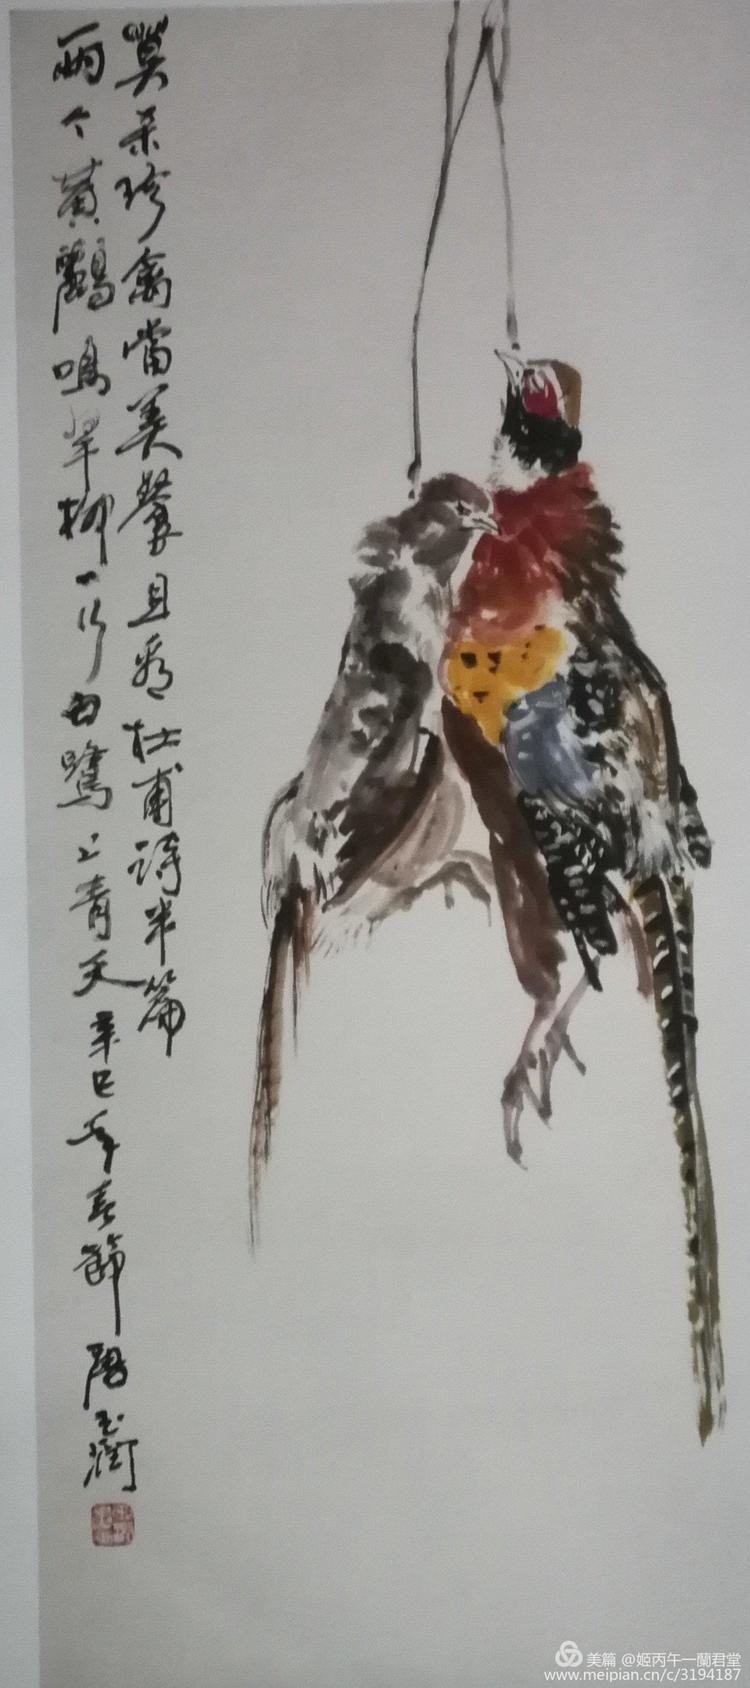 莫杀珍禽當美餐且看杜甫詩半篇
兩个黃鸝鳴翠柳一行白鷺上青天 辛巳年春節
美篇 @姬丙午一蘭君堂
www.meipian.cn/c/3194187